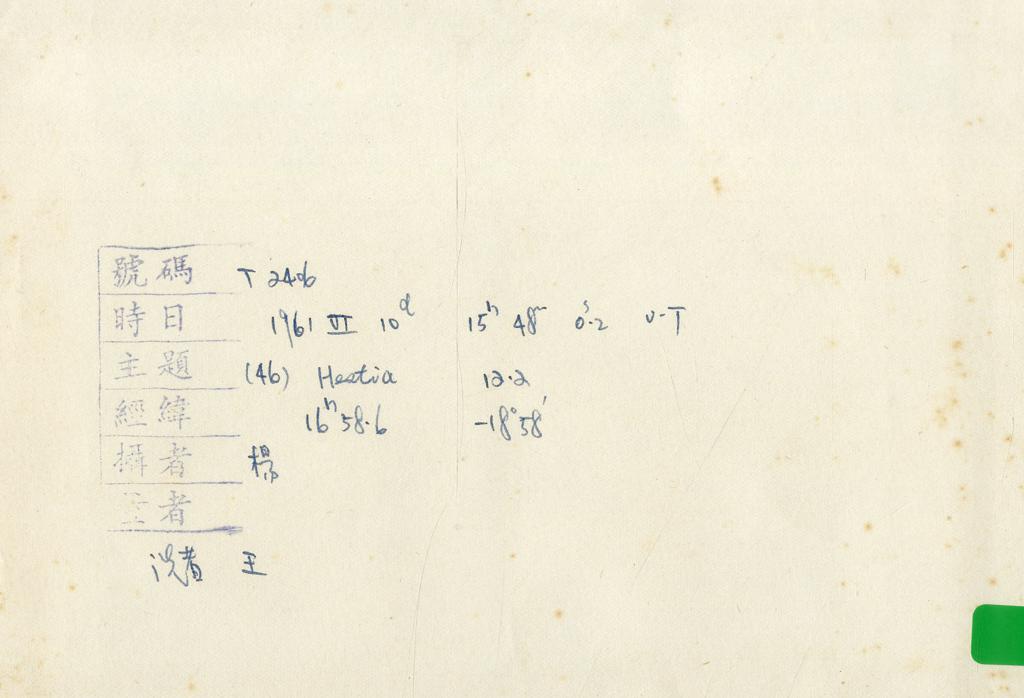 號碼 T 2406
時日 1961 VI 10ᵈ 15ʰ 48ᵐ 0ˢ.2 U-T
主題 (46) Hestia 12.2
經緯 16ʰ58.6 -18°58′
攝者 楊
者
洗者 王